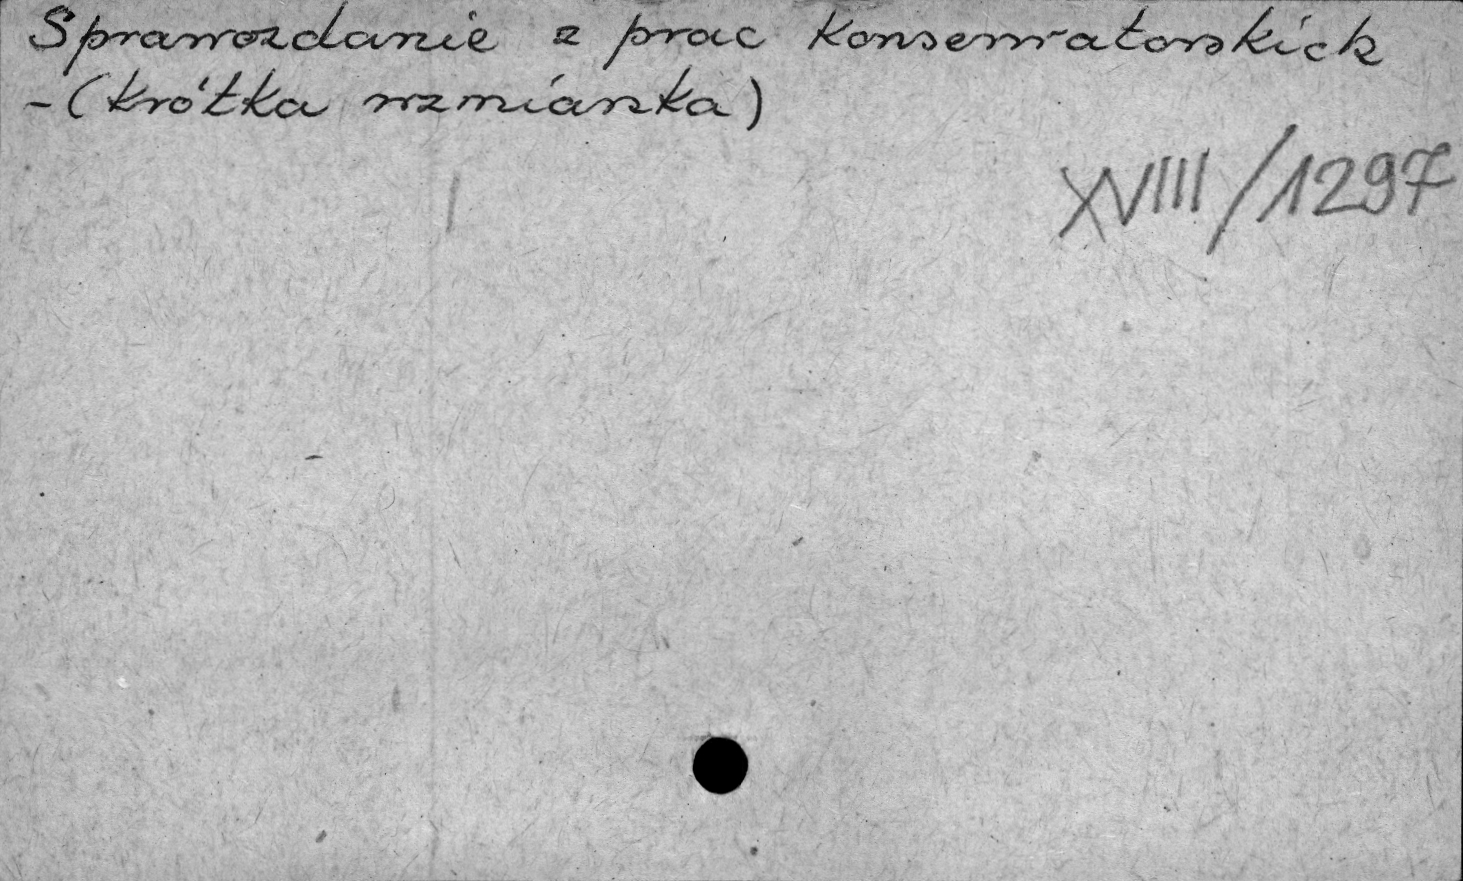 Sprawozdanie z prac Konserwatorskich
- (krótka wzmianka)
XVIII/1297